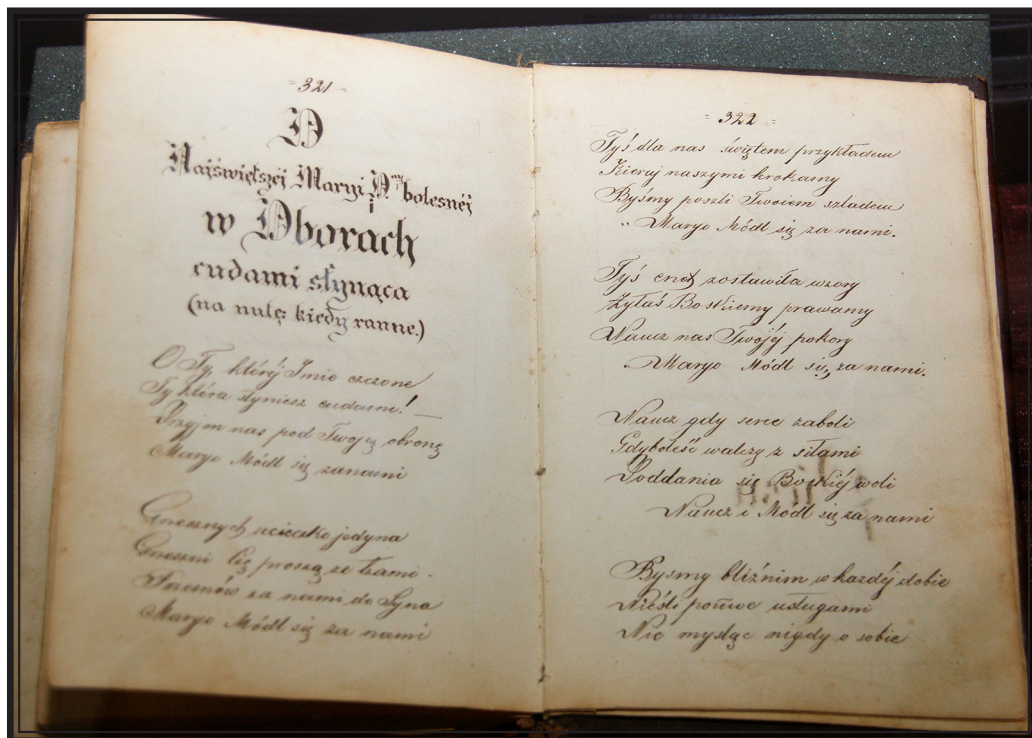 = 321 =
O
Najświętszej Maryi P.nny bolesnéj
i
w Oborach
cudami słynąca
(na nutę: kiedy ranne.)
O Ty, któréj Imie czczone
Ty która słyniesz cudami! —
Przyjm nas pod Twoją obronę
Maryo Módl się zanami
Grzesznych ucieczko jedyna
Grzeszni Cię proszą ze łzami.
Przemów za nami do Syna
Maryo Módl się za nami
= 322 =
Tyś dla nas świętem przykładem
Kieruj naszymi krokamy
Byśmy poszli Twoiem szladem
Maryo Módl się za nami.
Tyś cnót zostawiła wzory
Żyłaś Boskiemy prawamy
Naucz nas Twojéj pokory
Maryo Módl się, za nami.
Naucz gdy serce zaboli
Gdy boleść walczy z siłami
Poddania się Boskiéj woli
Naucz i Módl się za nami
Bysmy bliźnim w każdéj dobie
Nieśli pomoc usługami
Nie mysląc nigdy o sobie